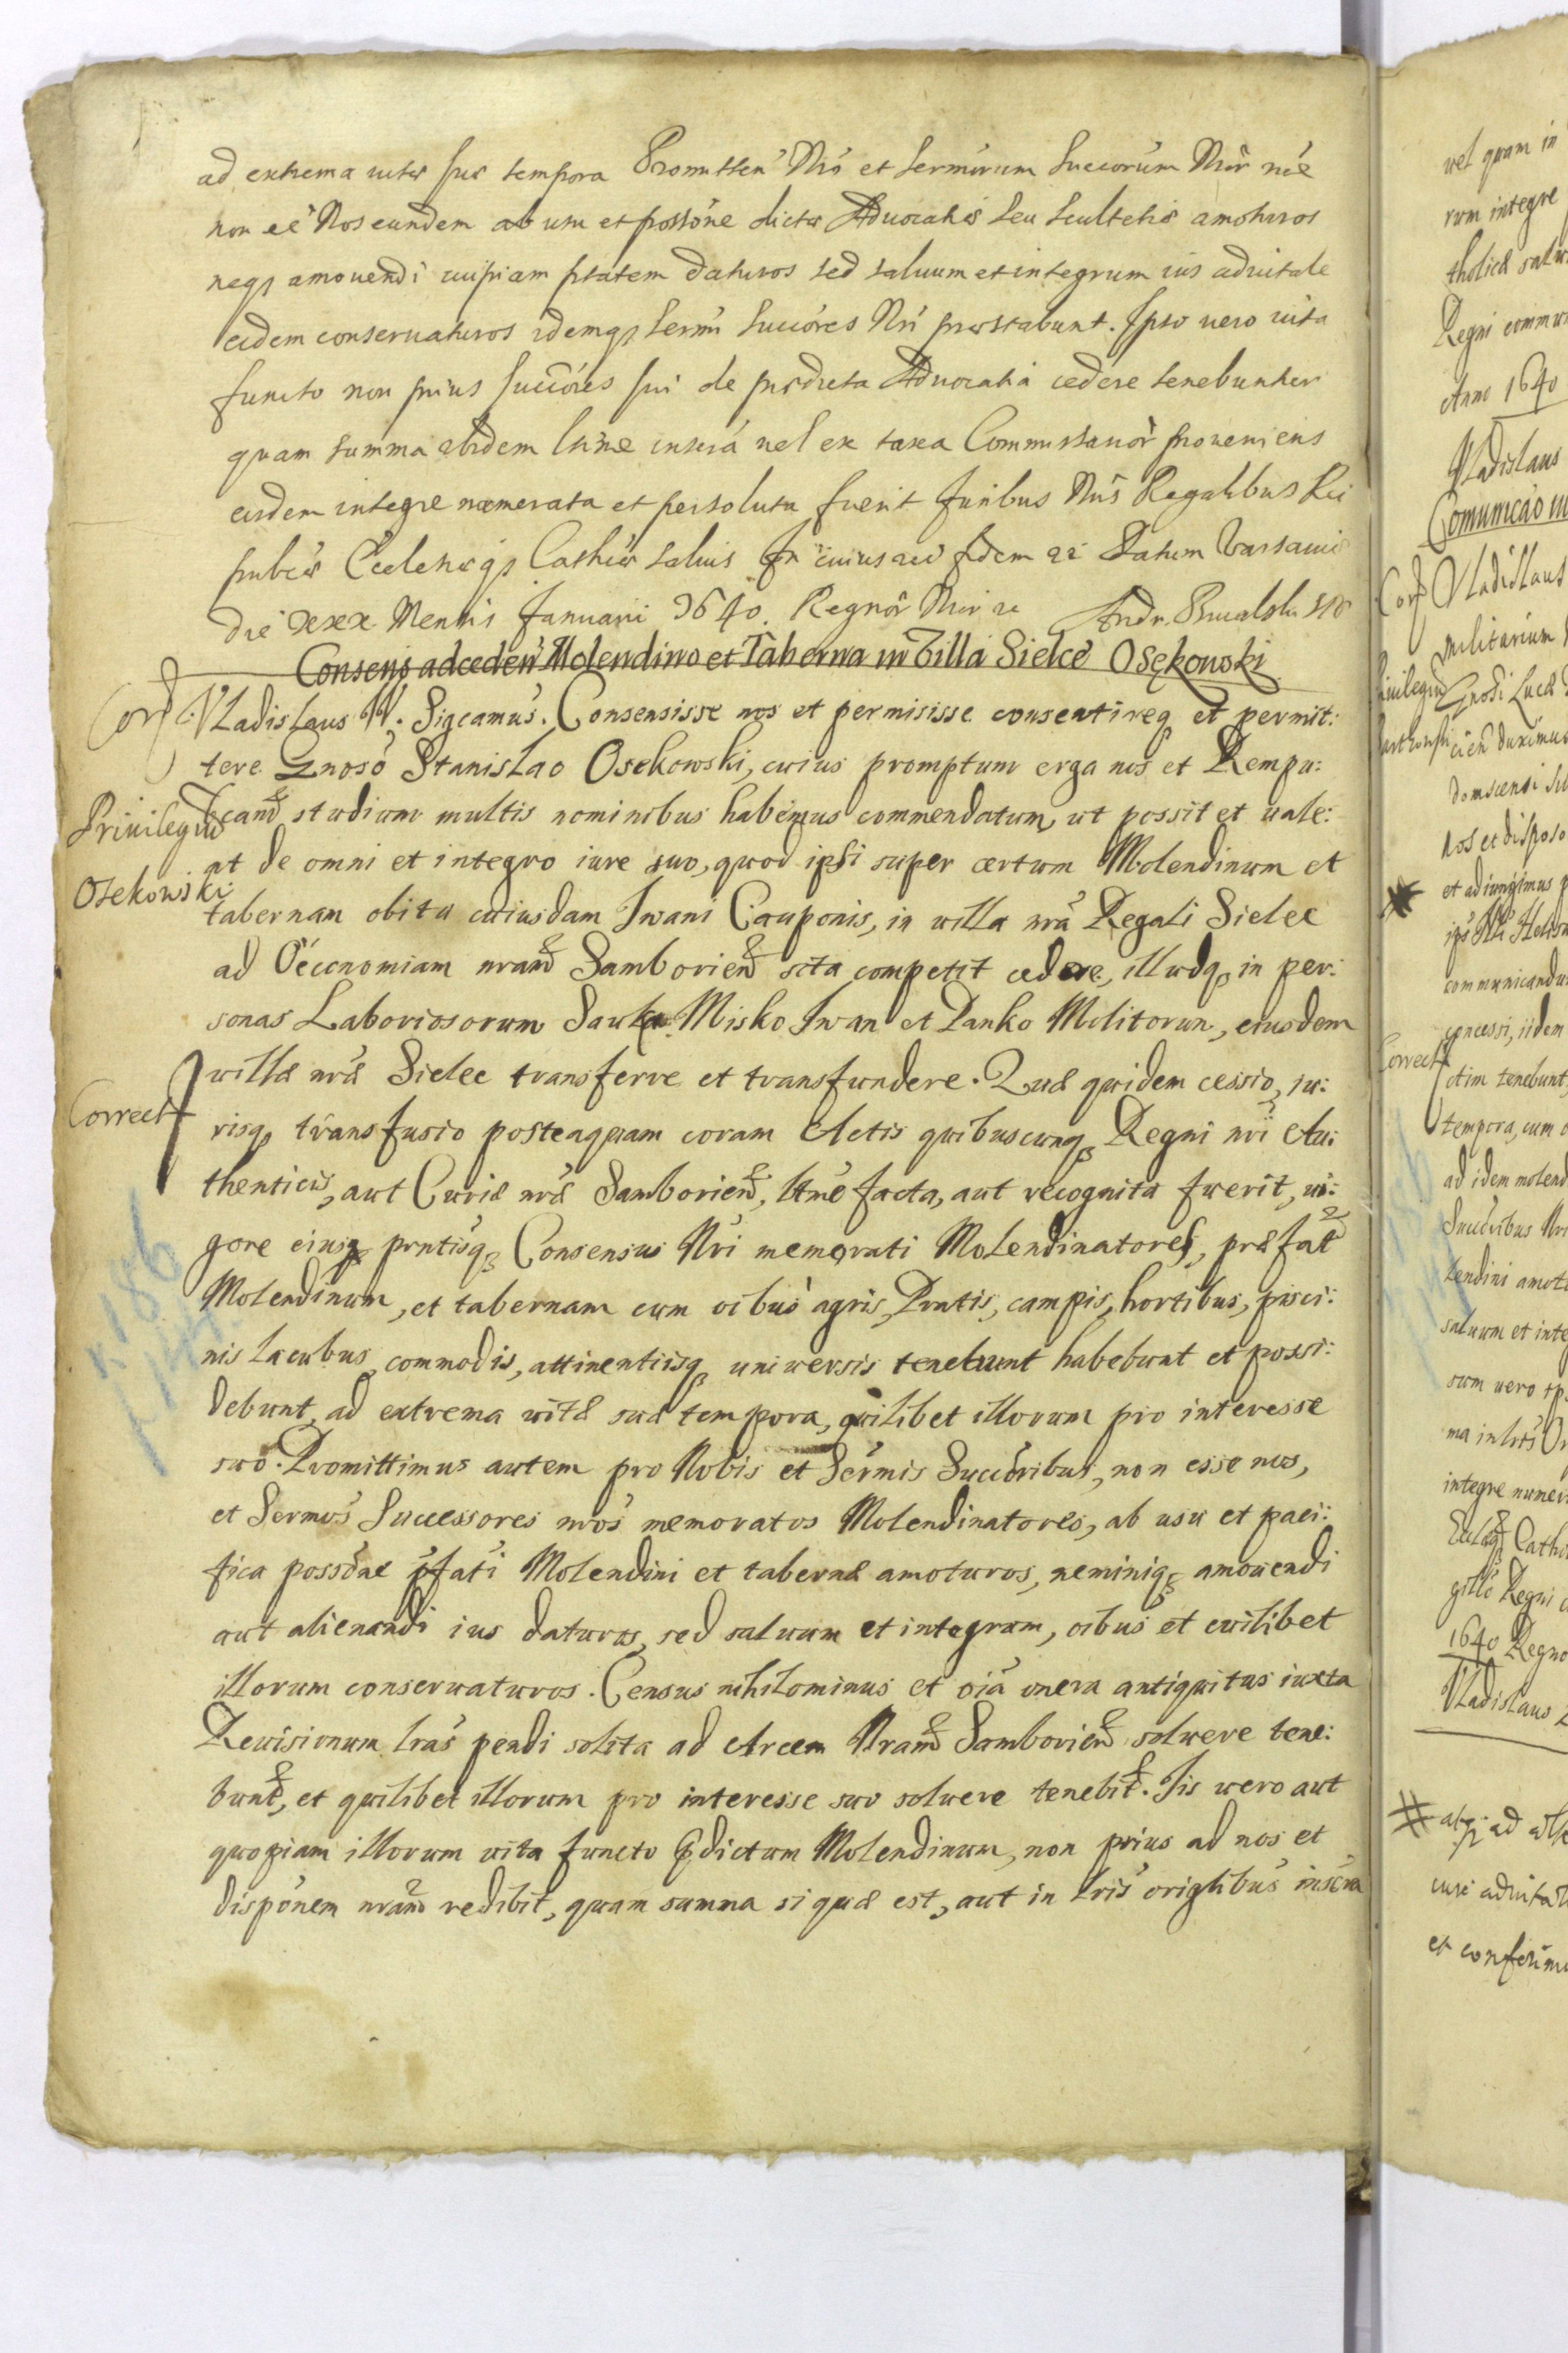 ad extrema vitæ suæ tempora Promitten Nrō et sermōrum Succorūm Nrōr nōe
non eē Nos eundem ab usu et possōne dictæ Aduocatiæ seu scultetiæ amoturos
neq3 amouendi cuipiam ptatem daturos sed saluum et integrum ius aduitale
eidem conseruaturos idemq3 sermi succōres Nri præstabunt. Ipso uero uita
functo non prius succōres sui de prædicta Aduocatia cedere tenebuntur
quam summa ibidem ltime inscrā uel ex taxa Commissarior proueniens
eisdem integre nœmerata et persoluta fuerit Juribus Nris Regalibus Rei
pubcæ Ecclesiæq3 Cathcæ saluis In cuius rei fidem ec Datum Varsauiæ
die xxx Mensis Januarii 1640. Regnōr Nrōr ec
Consens ad ceden Molendino et Taberna in Villa Sielce Osękowski
Corr Vladislaus IV. Sigcamus. Consensisse nos et permisisse consentireq3 et permit:
tere Gnoso Stanislao Osekowski, cuius promptum erga nos et Rempu:
Priuilegiū
blicam studium multis nominibus habemus commendatum, ut possit et uale:
at de omni et integro iure suo, quod ipsi super certum Molendinum et
Osekowski
tabernam obitu cuiusdam Iwani Cauponis, in villa nrā Regali Sielec
ad Oeconomiam nram Samborien sita competit cedere, illudq3 in per:
sonas Laboriosorum Misko Iwan et Panko Molitorum, eiusdem
villæ nræ Sielec transferre et transfundere. Quæ quidem cessio, iu:
Correct
risq3 transfusio posteaquam coram Actis quibuscunq3 Regni nri Au:
thenticis, aut Curiæ nræ Samborien, ltme facta, aut recognita fuerit, ui:
gore eiusq3 prntisq3 Consensus Nri memorati Molendinatores, præfat
Molendinum, et tabernam cum oibus agris, Pratis, campis, hortibus, pisci:
nis lacubus, commodis, attinentiisq3 uniuersis tenebunt habebunt et possi:
debunt, ad extrema uitæ suæ tempora, quilibet illorum pro interesse
suo. Promittimus autem pro Nobis et Sermis Succōribus, non esse nos,
et Sermos Successores nros memoratos Molendinatores, ab usu et paci:
fica possōne pfati Molendini et tabernæ amoturos, neminiq3 amouendi
aut alienandi ius daturos, sed saluum et integrum, oibus et cuilibet
illorum conseruaturos. Census nihilominus et oia onera antiquitus iuxta
Reuisionum lras pendi solita ad Arcem Nram Samborien soluere tene:
bunt, et quilibet illorum pro interesse suo soluere tenebit. Iis uero aut
quopiam illorum uita functo pdictum Molendinum, non prius ad nos et
dispōnem nram redibit, quam summa si quæ est, aut in lris origlibus inscra
vel quam in
rum integre
tholicæ salu
Regni commu
Anno 1640
Vladislaus
Comunicao
Corr Vladislaus
militarium
Gnosi Lucæ
cien duximus
nos et disposo
et adiungimus
communicandu
concessi, iidem
Correct
ctim tenebunt
tempora, cum
ad idem molend
Succribus Nri
lendini amot
saluum et inte
sum uero
integre numer
Cath
Regni
1640 Regno
Vladislaus
et conferimu